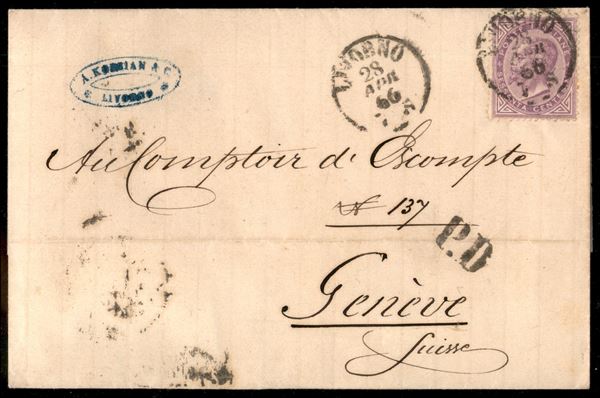 A. KORSIAN & C.
LIVORNO
LIVORNO
28
APR
66
LIVORNO
28
APR
66
Au Comptoir d'Escompte
N 137
P.D
Genève
Suisse